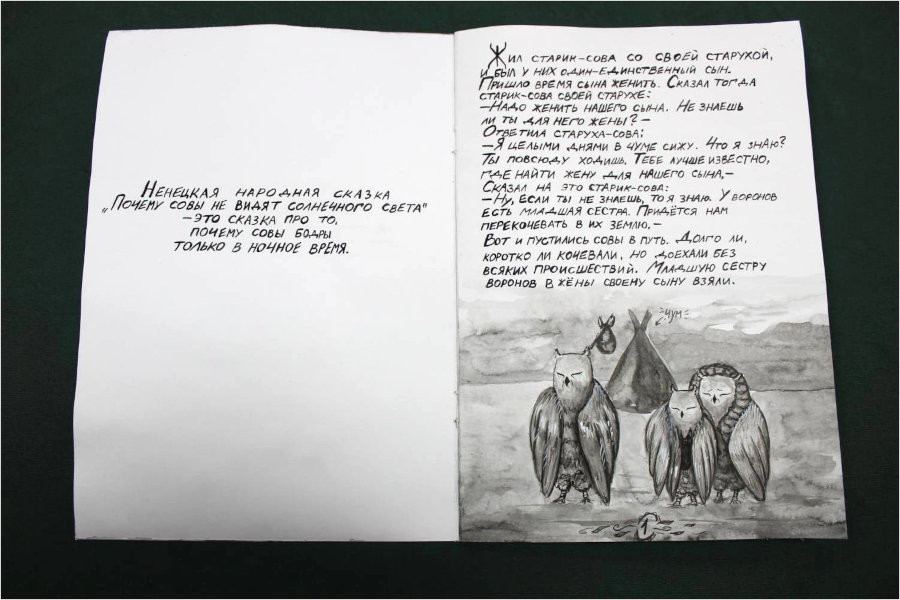 Ненецкая народная сказка
„Почему совы не видят солнечного света"
–это сказка про то,
почему совы бодры
только в ночное время.
Жил старик-сова со своей старухой,
и был у них один-единственный сын.
Пришло время сына женить. Сказал тогда
старик-сова своей старухе:
–Надо женить нашего сына. Не знаешь
ли ты для него жены?–
Ответила старуха-сова:
–Я целыми днями в чуме сижу. Что я знаю?
Ты повсюду ходишь. Тебе лучше известно,
где найти жену для нашего сына,–
Сказал на это старик-сова:
–Ну, если ты не знаешь, то я знаю. У воронов
есть младшая сестра. Придётся нам
перекочевать в их землю.–
Вот и пустились совы в путь. Долго ли,
коротко ли кочевали, но доехали без
всяких происшествий. Младшую сестру
воронов в жёны своему сыну взяли.
чум
1